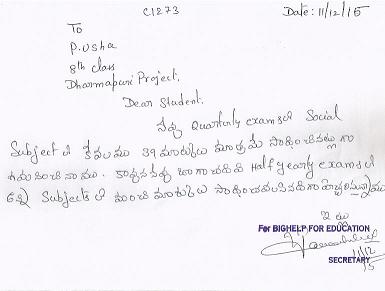 C1273
Date: 11/12/15
To
P. Usha
8th class
Dharmapuri Project.
Dear Student.
నీవు Quarterly exams లో Social
Subject లో కేవలము 39 మార్కులు మాత్రమే సాధించినట్లుగా
గమనించినాము. కావున నీవు బాగా చదివి Half yearly exams లో
అన్ని Subjects లో మంచి మార్కులు సాధించవలసినదిగా కోరుచున్నాము
ఇట్లు
For BIGHELP FOR EDUCATION
11/12
15
SECRETARY